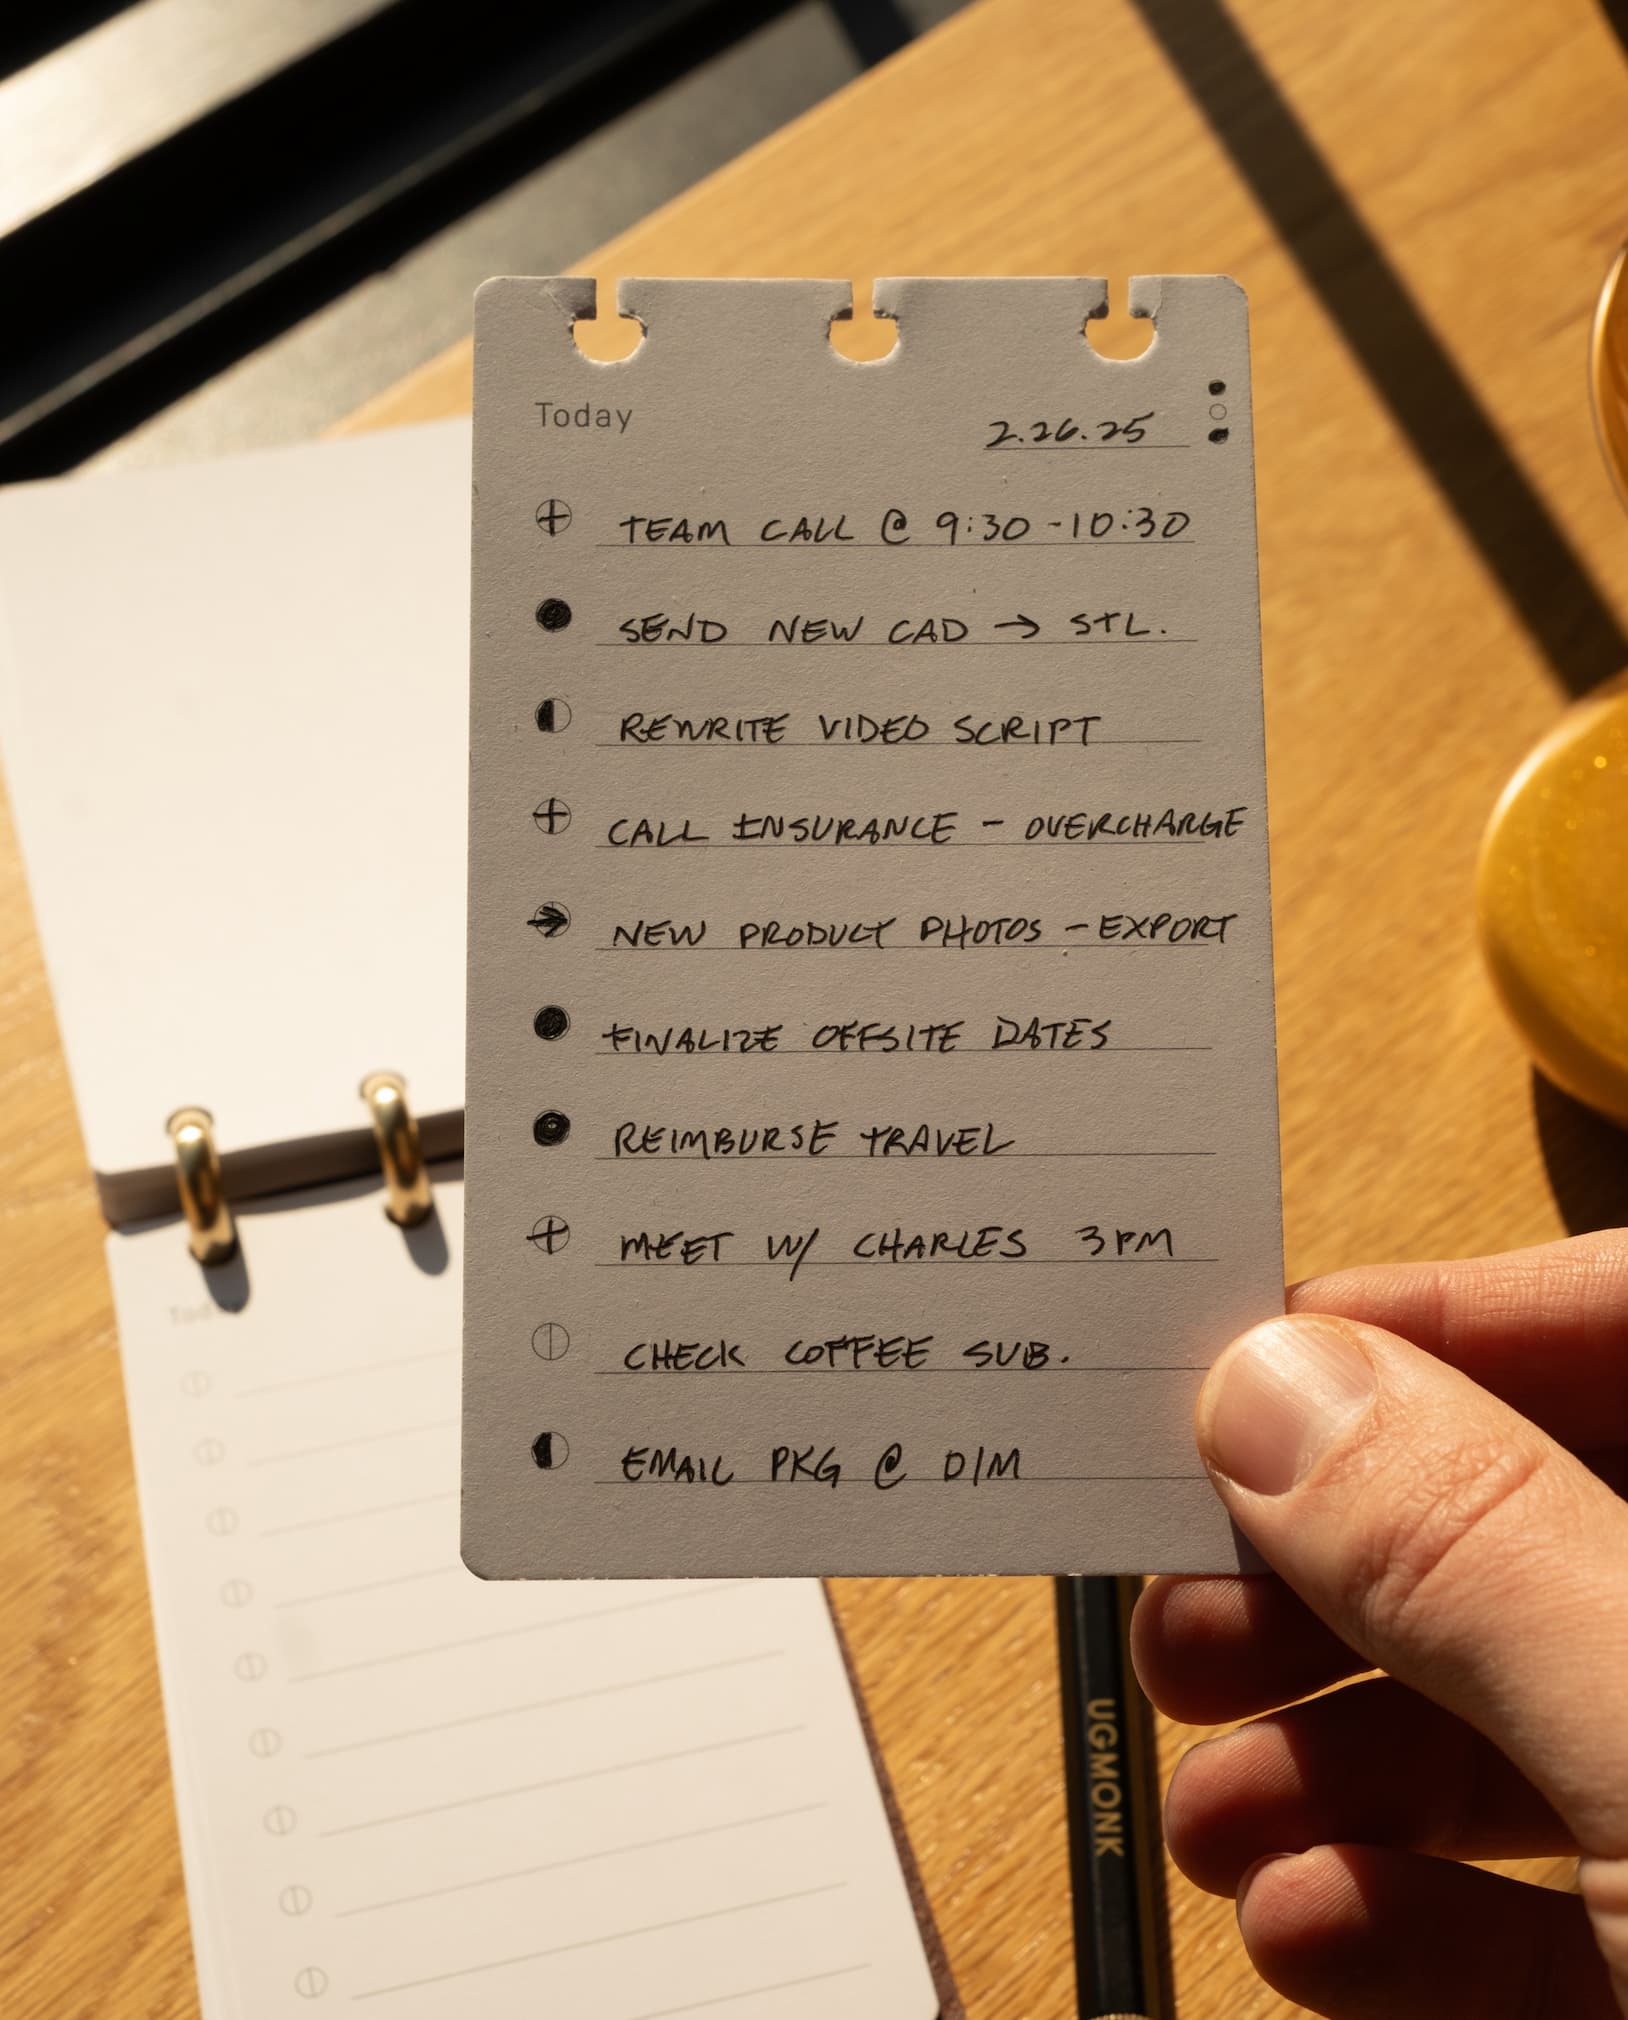 Today
2.26.25
TEAM CALL @ 9:30 - 10:30
SEND NEW CAD → STL.
REWRITE VIDEO SCRIPT
CALL INSURANCE - OVERCHARGE
NEW PRODUCT PHOTOS - EXPORT
FINALIZE OFFSITE DATES
REIMBURSE TRAVEL
MEET W/ CHARLES 3PM
CHECK COFFEE SUB.
EMAIL PKG @ D/M
Today
UGMONK